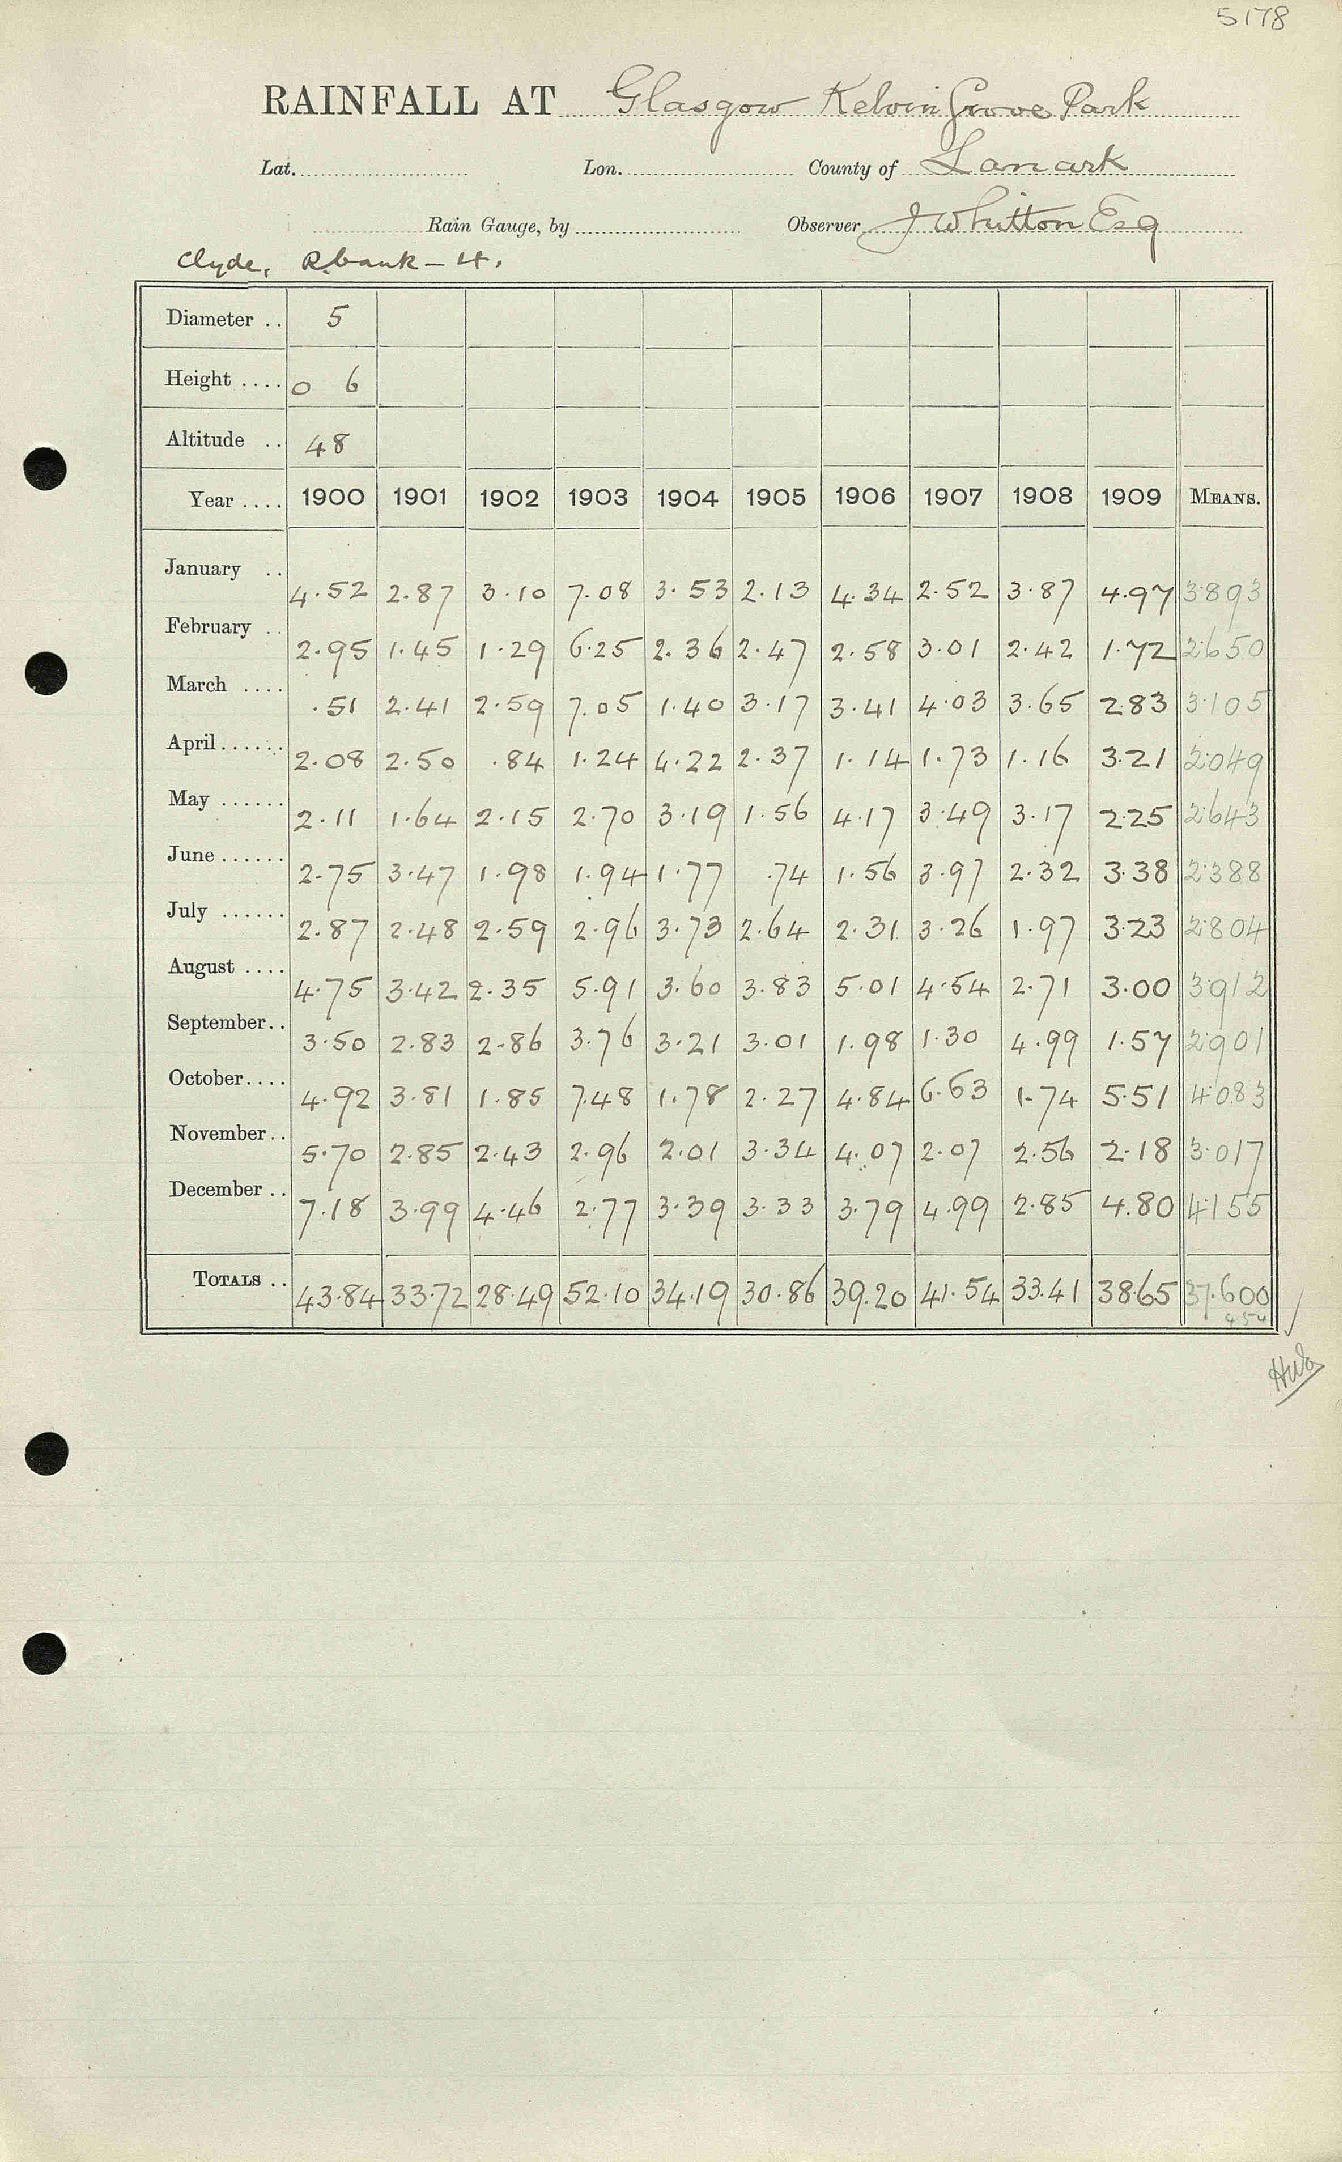 5178
RAINFALL AT Glasgow Kelvin Grove Park
Lat. Lon. County of Lanark
Rain Gauge, by Observer J Whitton Esq
Clyde, R. bank – 4.
Diameter .. 5
Height .... 0 6
Altitude .. 48
Year .... 1900 1901 1902 1903 1904 1905 1906 1907 1908 1909 MEANS.
January .. 4.52 2.87 3.10 7.08 3.53 2.13 4.34 2.52 3.87 4.97 3.893
February .. 2.95 1.45 1.29 6.25 2.36 2.47 2.58 3.01 2.42 1.72 2.650
March .... .51 2.41 2.59 7.05 1.40 3.17 3.41 4.03 3.65 2.83 3.105
April ...... 2.08 2.50 .84 1.24 4.22 2.37 1.14 1.73 1.16 3.21 2.049
May ...... 2.11 1.64 2.15 2.70 3.19 1.56 4.17 3.49 3.17 2.25 2.643
June ...... 2.75 3.47 1.98 1.94 1.77 .74 1.56 3.97 2.32 3.38 2.388
July ...... 2.87 2.48 2.59 2.96 3.73 2.64 2.31 3.26 1.97 3.23 2.804
August .... 4.75 3.42 2.35 5.91 3.60 3.83 5.01 4.54 2.71 3.00 3.912
September.. 3.50 2.83 2.86 3.76 3.21 3.01 1.98 1.30 4.99 1.57 2.901
October.... 4.92 3.81 1.85 7.48 1.78 2.27 4.84 6.63 1.74 5.51 4.083
November.. 5.70 2.85 2.43 2.96 2.01 3.34 4.07 2.07 2.56 2.18 3.017
December .. 7.18 3.99 4.46 2.77 3.39 3.33 3.79 4.99 2.85 4.80 4.155
TOTALS .. 43.84 33.72 28.49 52.10 34.19 30.86 39.20 41.54 33.41 38.65 37.600